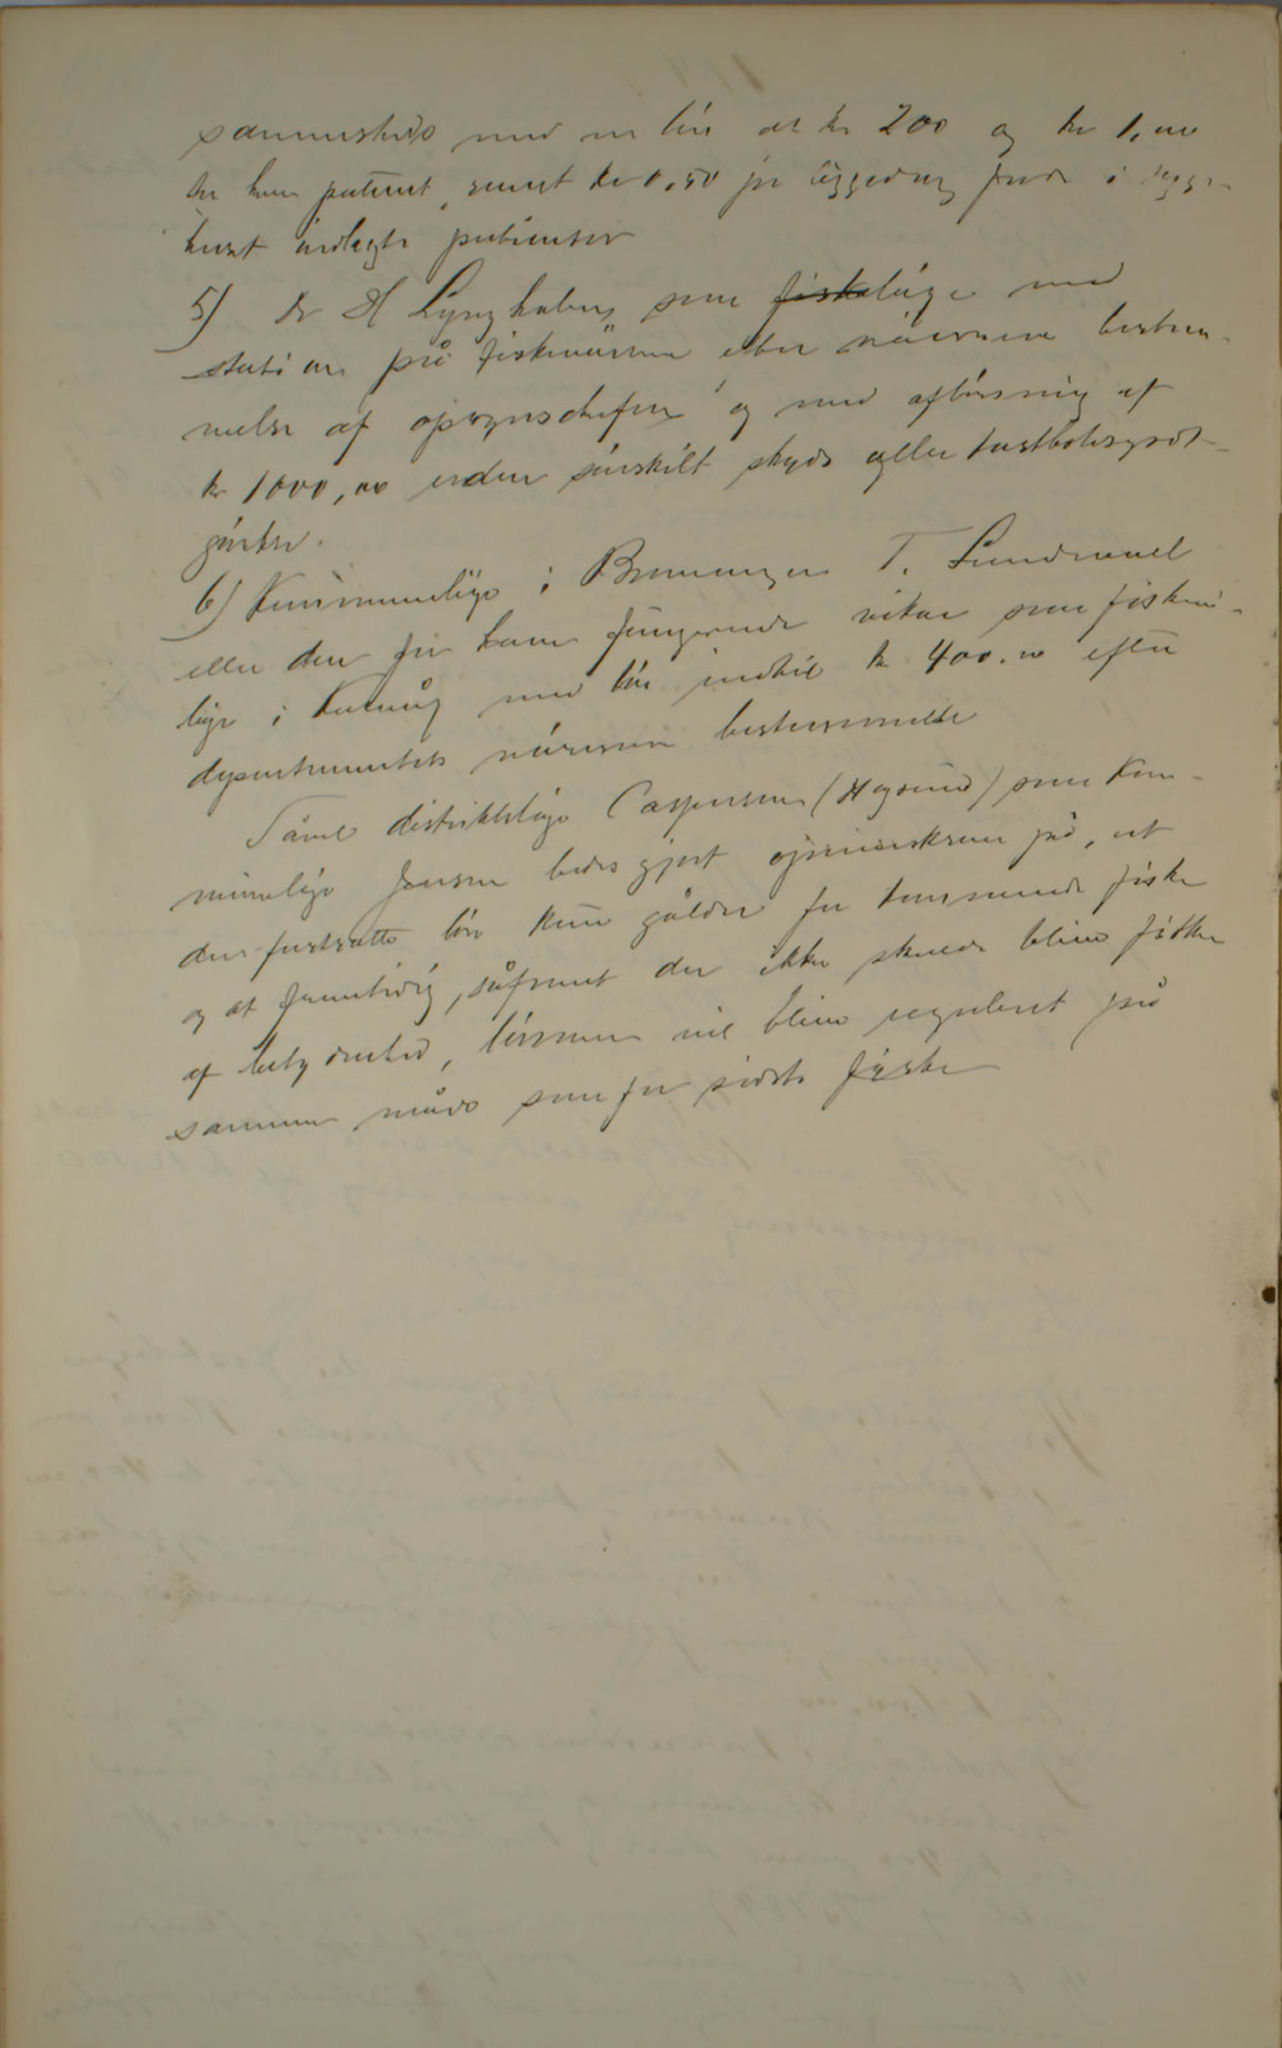 sammesteds med en løn af kr 200 og kr 1,00
for hver patient, samt kr 0,50 pr liggedag for de i syge-
huset indlagte patienter
5) dr H Lyngholm som fiskelæge med
station på fiskeværene efter nærmere bestem-
melse af opsynschefen og med aflønning af
kr 1000,00 uden særskilt skyds eller kostholdsgodt-
gørelse.
6) Kommunelæge i Brønnøen T. Sundsvael
eller den for ham fungerende vikar som fiske-
læge i med løn indtil kr 400.00 efter
departementets nærmere bestemmelse
Såvel distriktslæge Caspersen (Høysund) som Kom-
munelæge Jensen bedes gjort opmærksom på, at
den fastsatte løn kun gælder for kommende fiske
og at fremtidig, såfremt der ikke skulde blive fiske
af betydenhed, lønnen vil blive reguleret på
samme måde som for sidste fiske